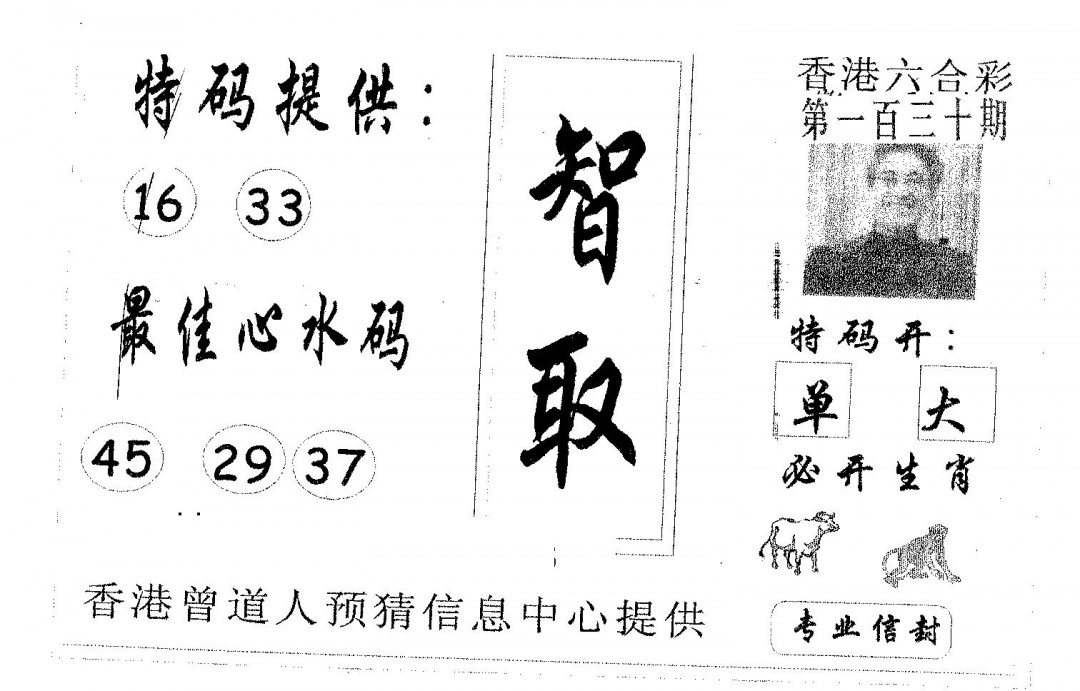 特码提供：
16 33
最佳心水码
45 29 37
智取
香港六合彩
第一百三十期
特码开：
单 大
必开生肖
专业信封
香港曾道人预猜信息中心提供